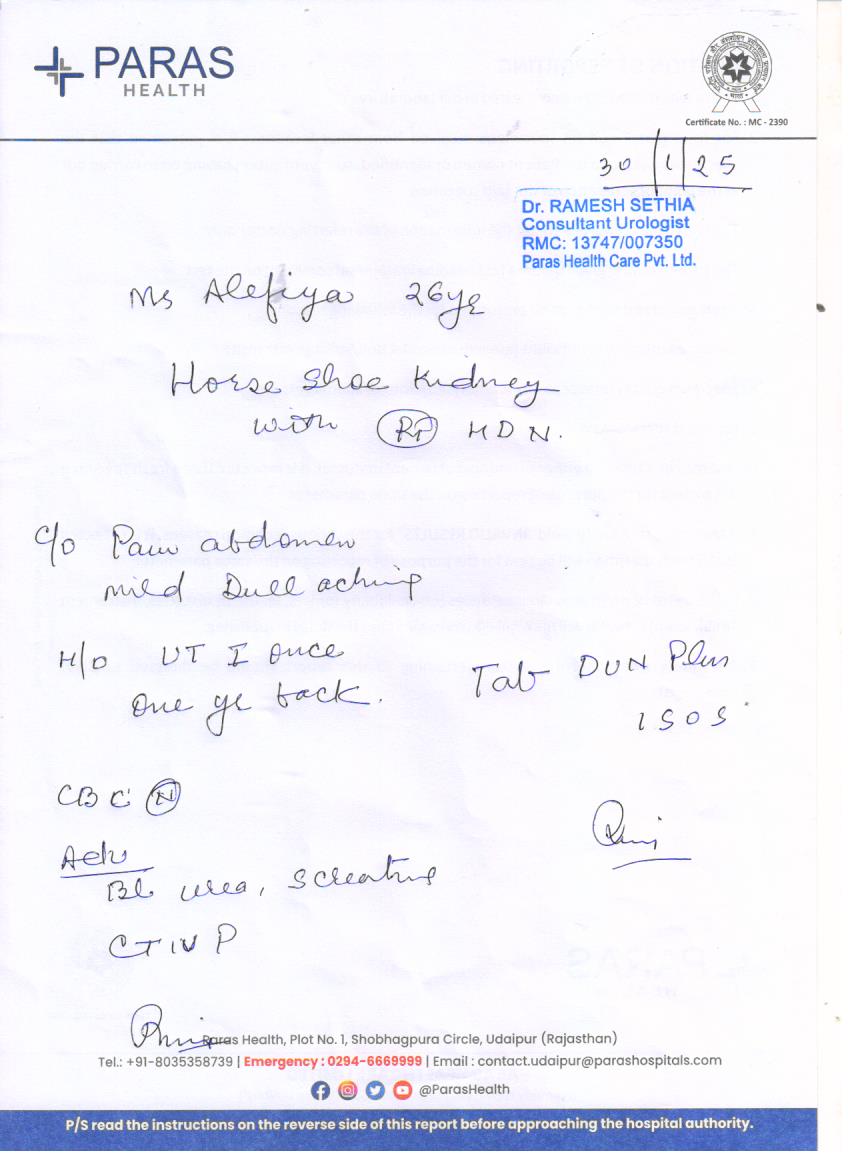 PARAS
HEALTH
Certificate No. : MC - 2390
30 | 1 | 25
Dr. RAMESH SETHIA
Consultant Urologist
RMC: 13747/007350
Paras Health Care Pvt. Ltd.
Ms Alefiya 26ye
Horse Shoe Kidney
with Rt HDN.
C/o Pain abdomen
mild Dull aching
H/O UTI once
one ye back.
Tab DUN Plus
1 SOS
CBC N
Adv
Bl urea, S creatine
CT IVP
Paras Health, Plot No. 1, Shobhagpura Circle, Udaipur (Rajasthan)
Tel.: +91-8035358739 | Emergency : 0294-6669999 | Email : contact.udaipur@parashospitals.com
@ParasHealth
P/S read the instructions on the reverse side of this report before approaching the hospital authority.